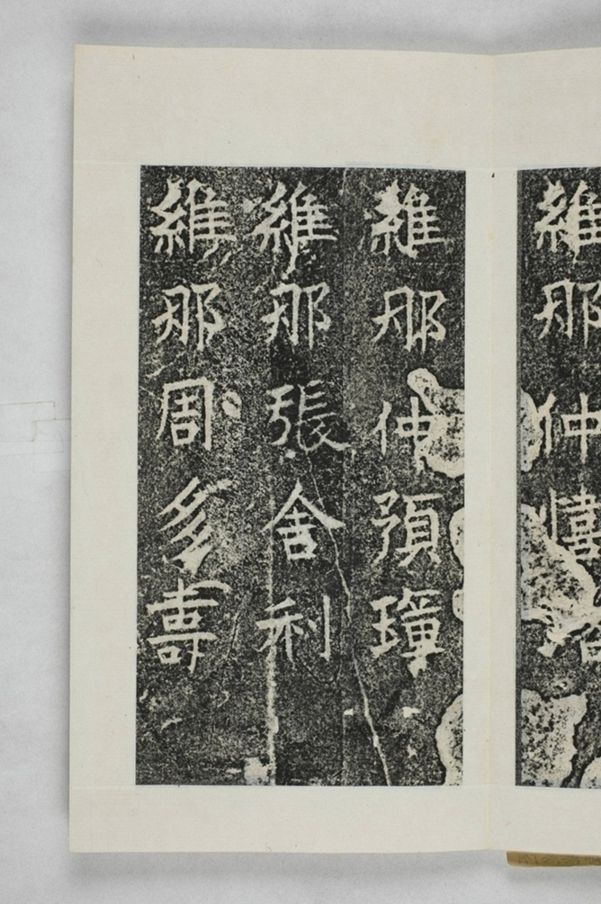 維那仲
維那仲預璋
維那張舍利
維那周多壽